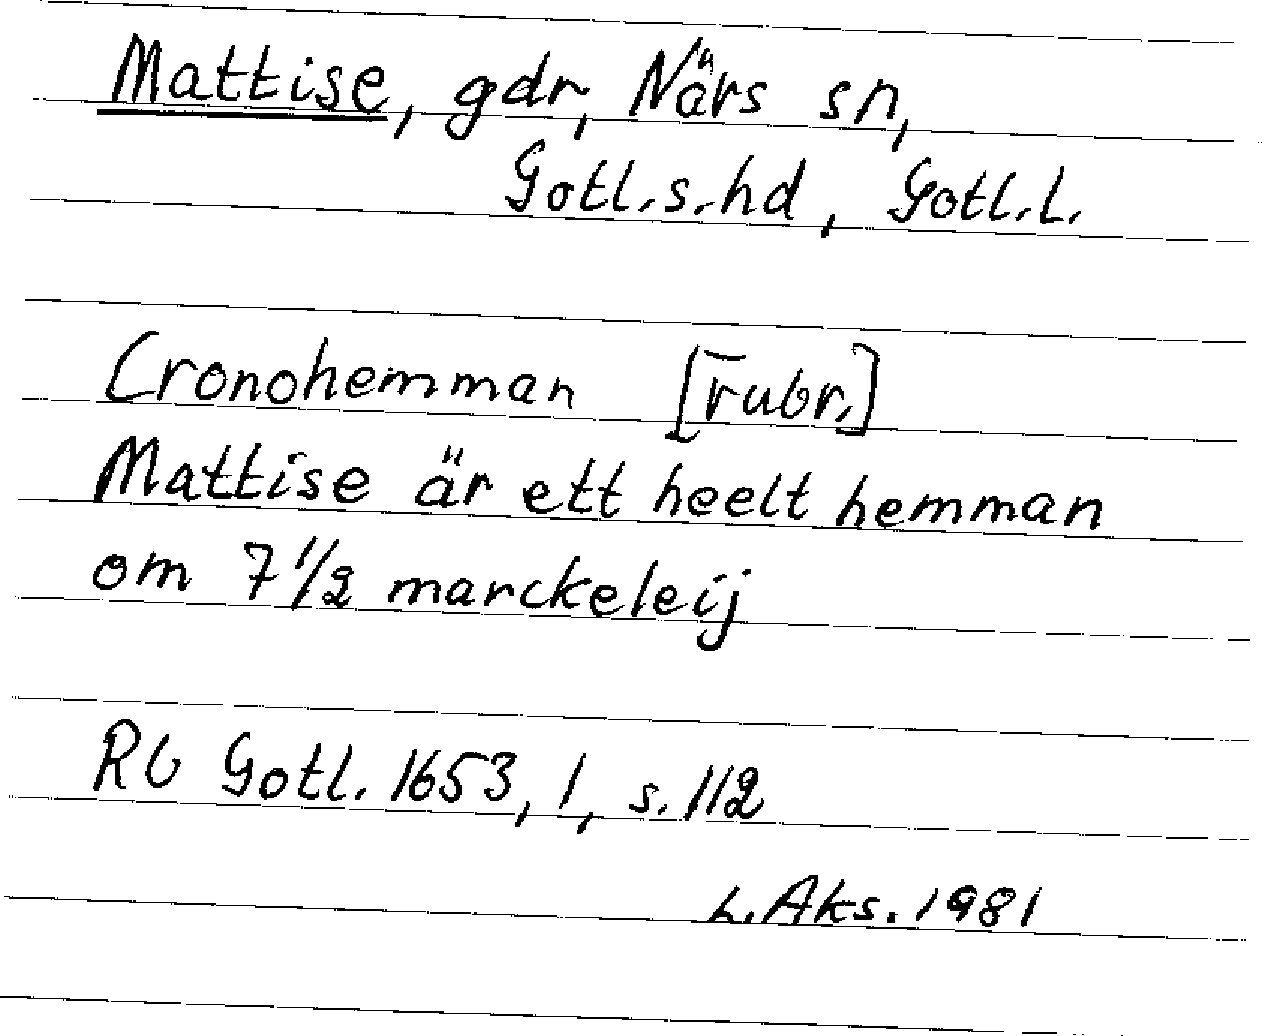 Mattise, gdr, Närs sn,
Gotl.s.hd, Gotl.l.
Cronohemman [rubr.]
Mattise är ett heelt hemman
om 7 1/2 marckeleij
Rb Gotl. 1653, 1, s. 112
L. Aks. 1981